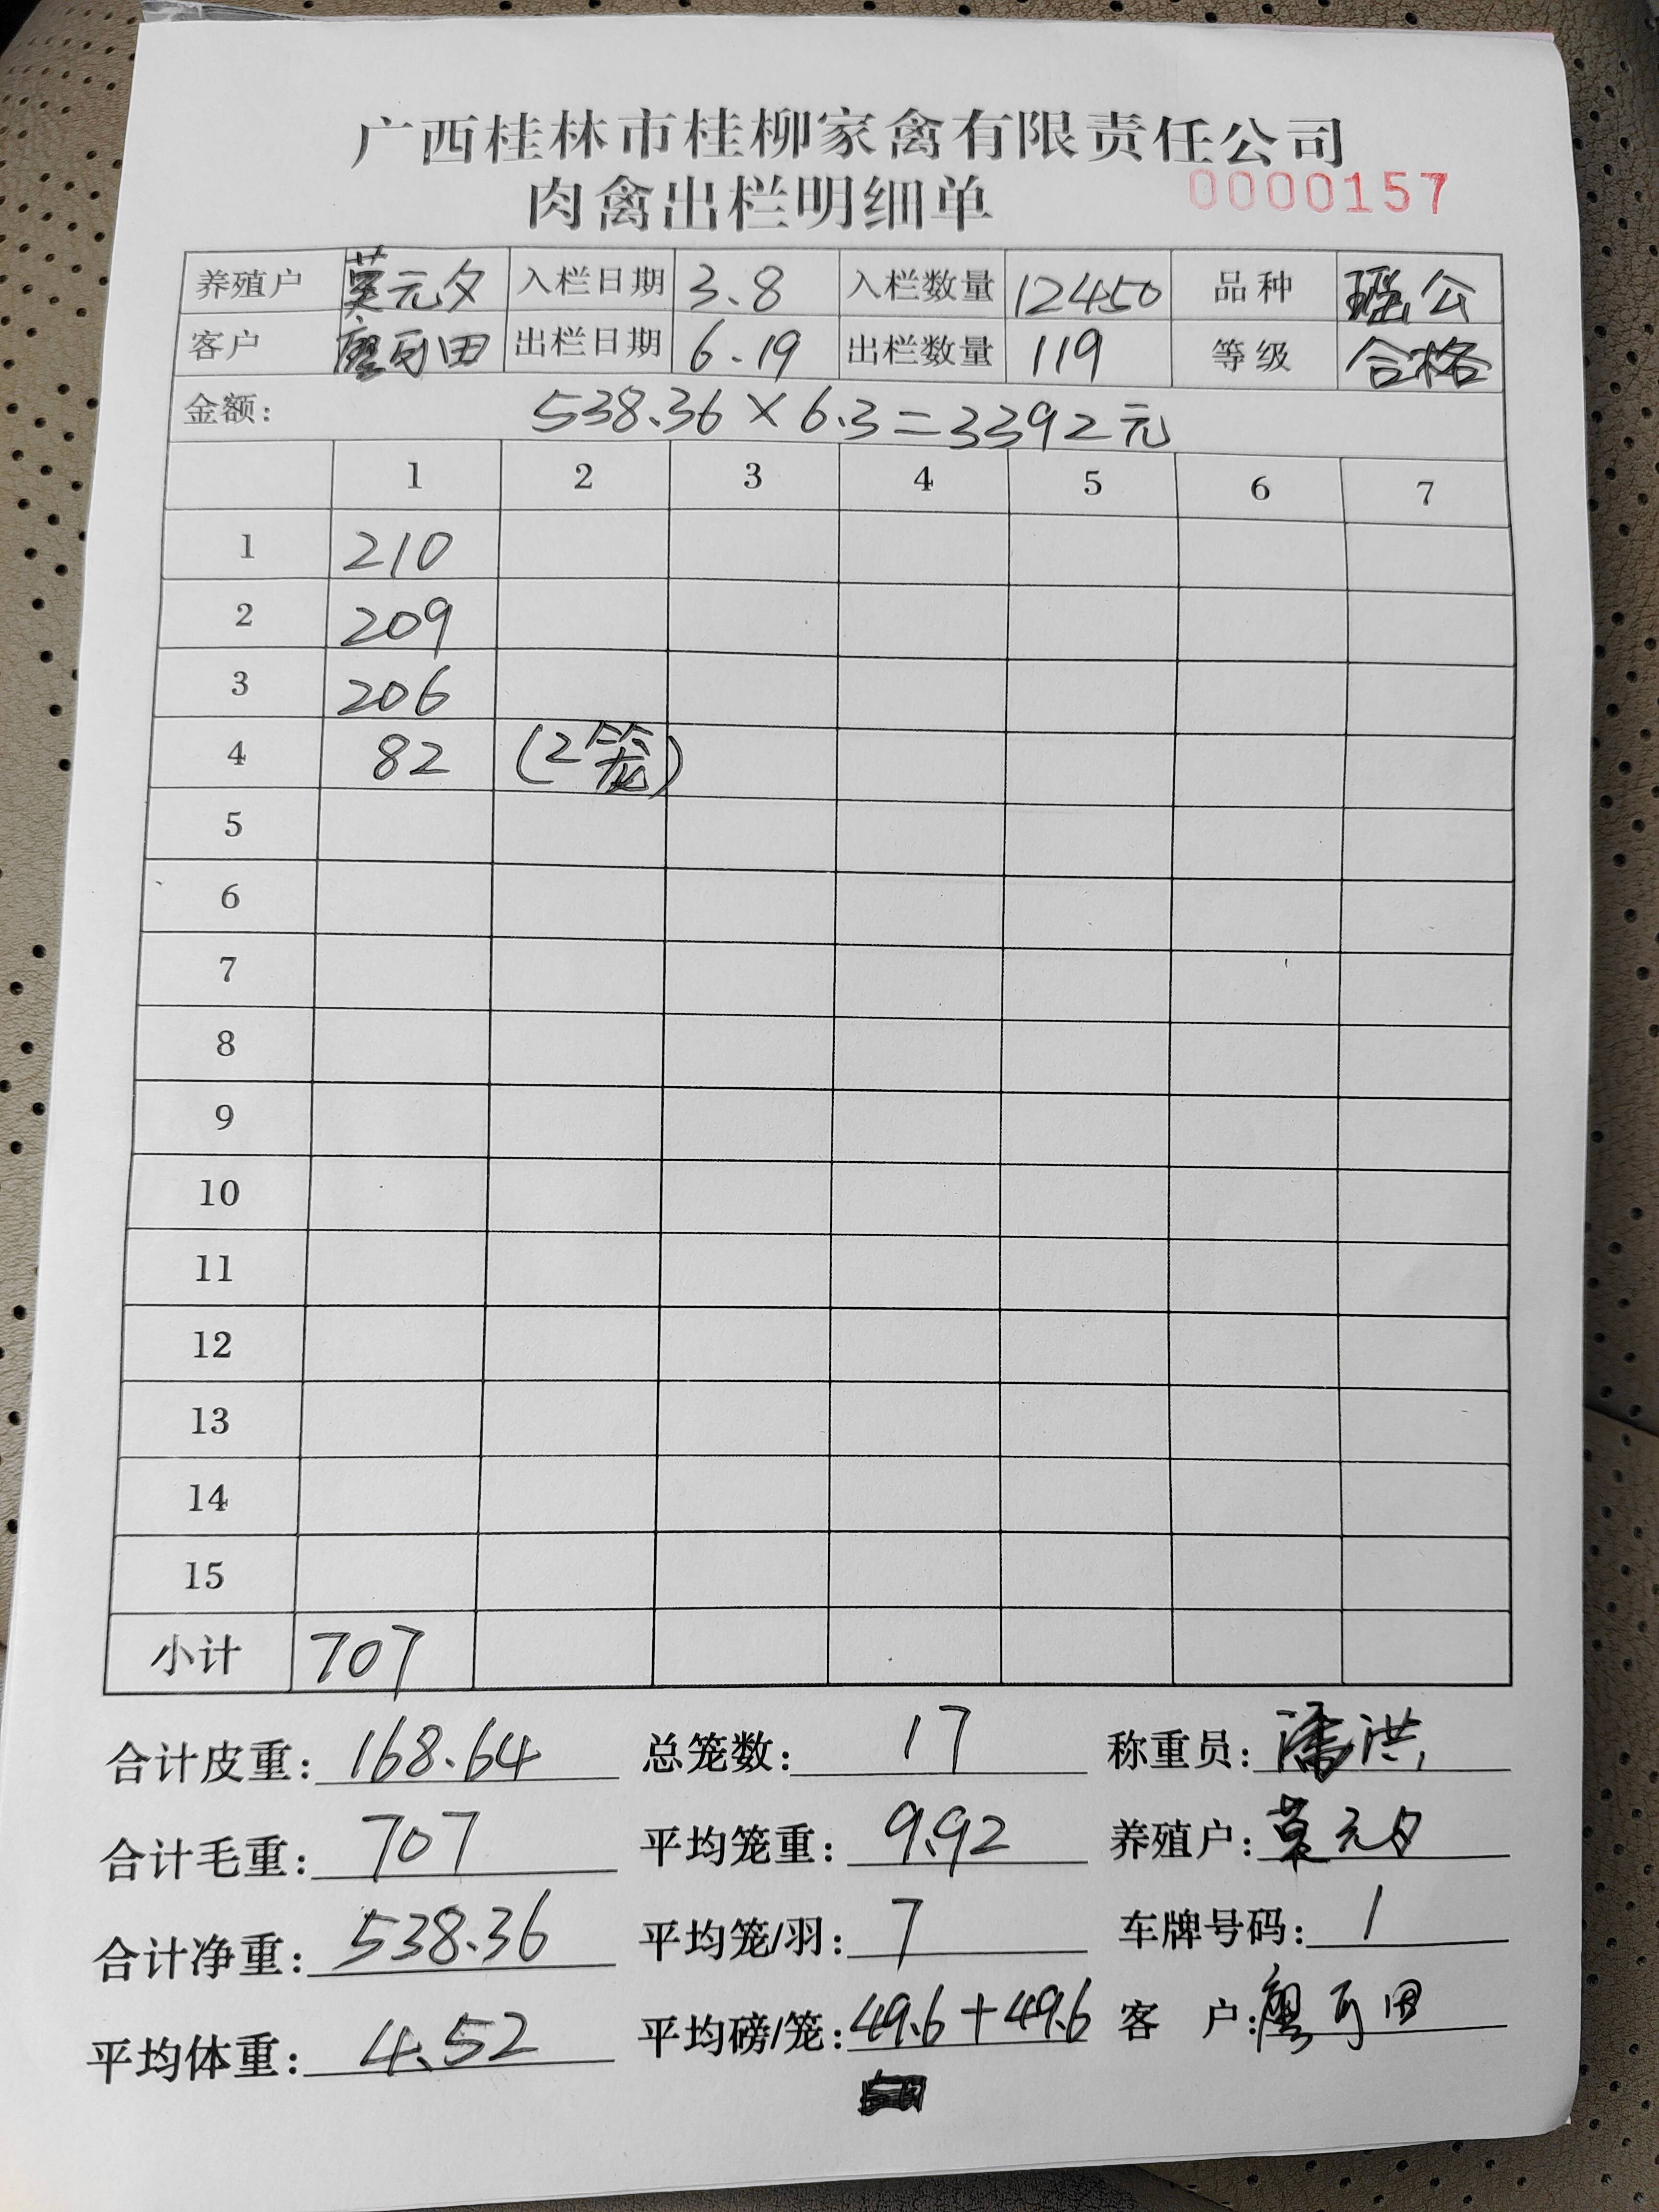 广西桂林市桂柳家禽有限责任公司
肉禽出栏明细单 0000157
养殖户 莫元夕 入栏日期 3.8 入栏数量 12450 品种 瑶公
客户 廖可田 出栏日期 6.19 出栏数量 119 等级 合格
金额: 538.36×6.3=3392元
1 2 3 4 5 6 7
1 210
2 209
3 206
4 82 (2笼)
5
6
7
8
9
10
11
12
13
14
15
小计 707
合计皮重: 168.64 总笼数: 17 称重员: 潘洪
合计毛重: 707 平均笼重: 9.92 养殖户: 莫元夕
合计净重: 538.36 平均笼/羽: 7 车牌号码: 1
平均体重: 4.52 平均磅/笼: 49.6+49.6 客 户: 廖可田